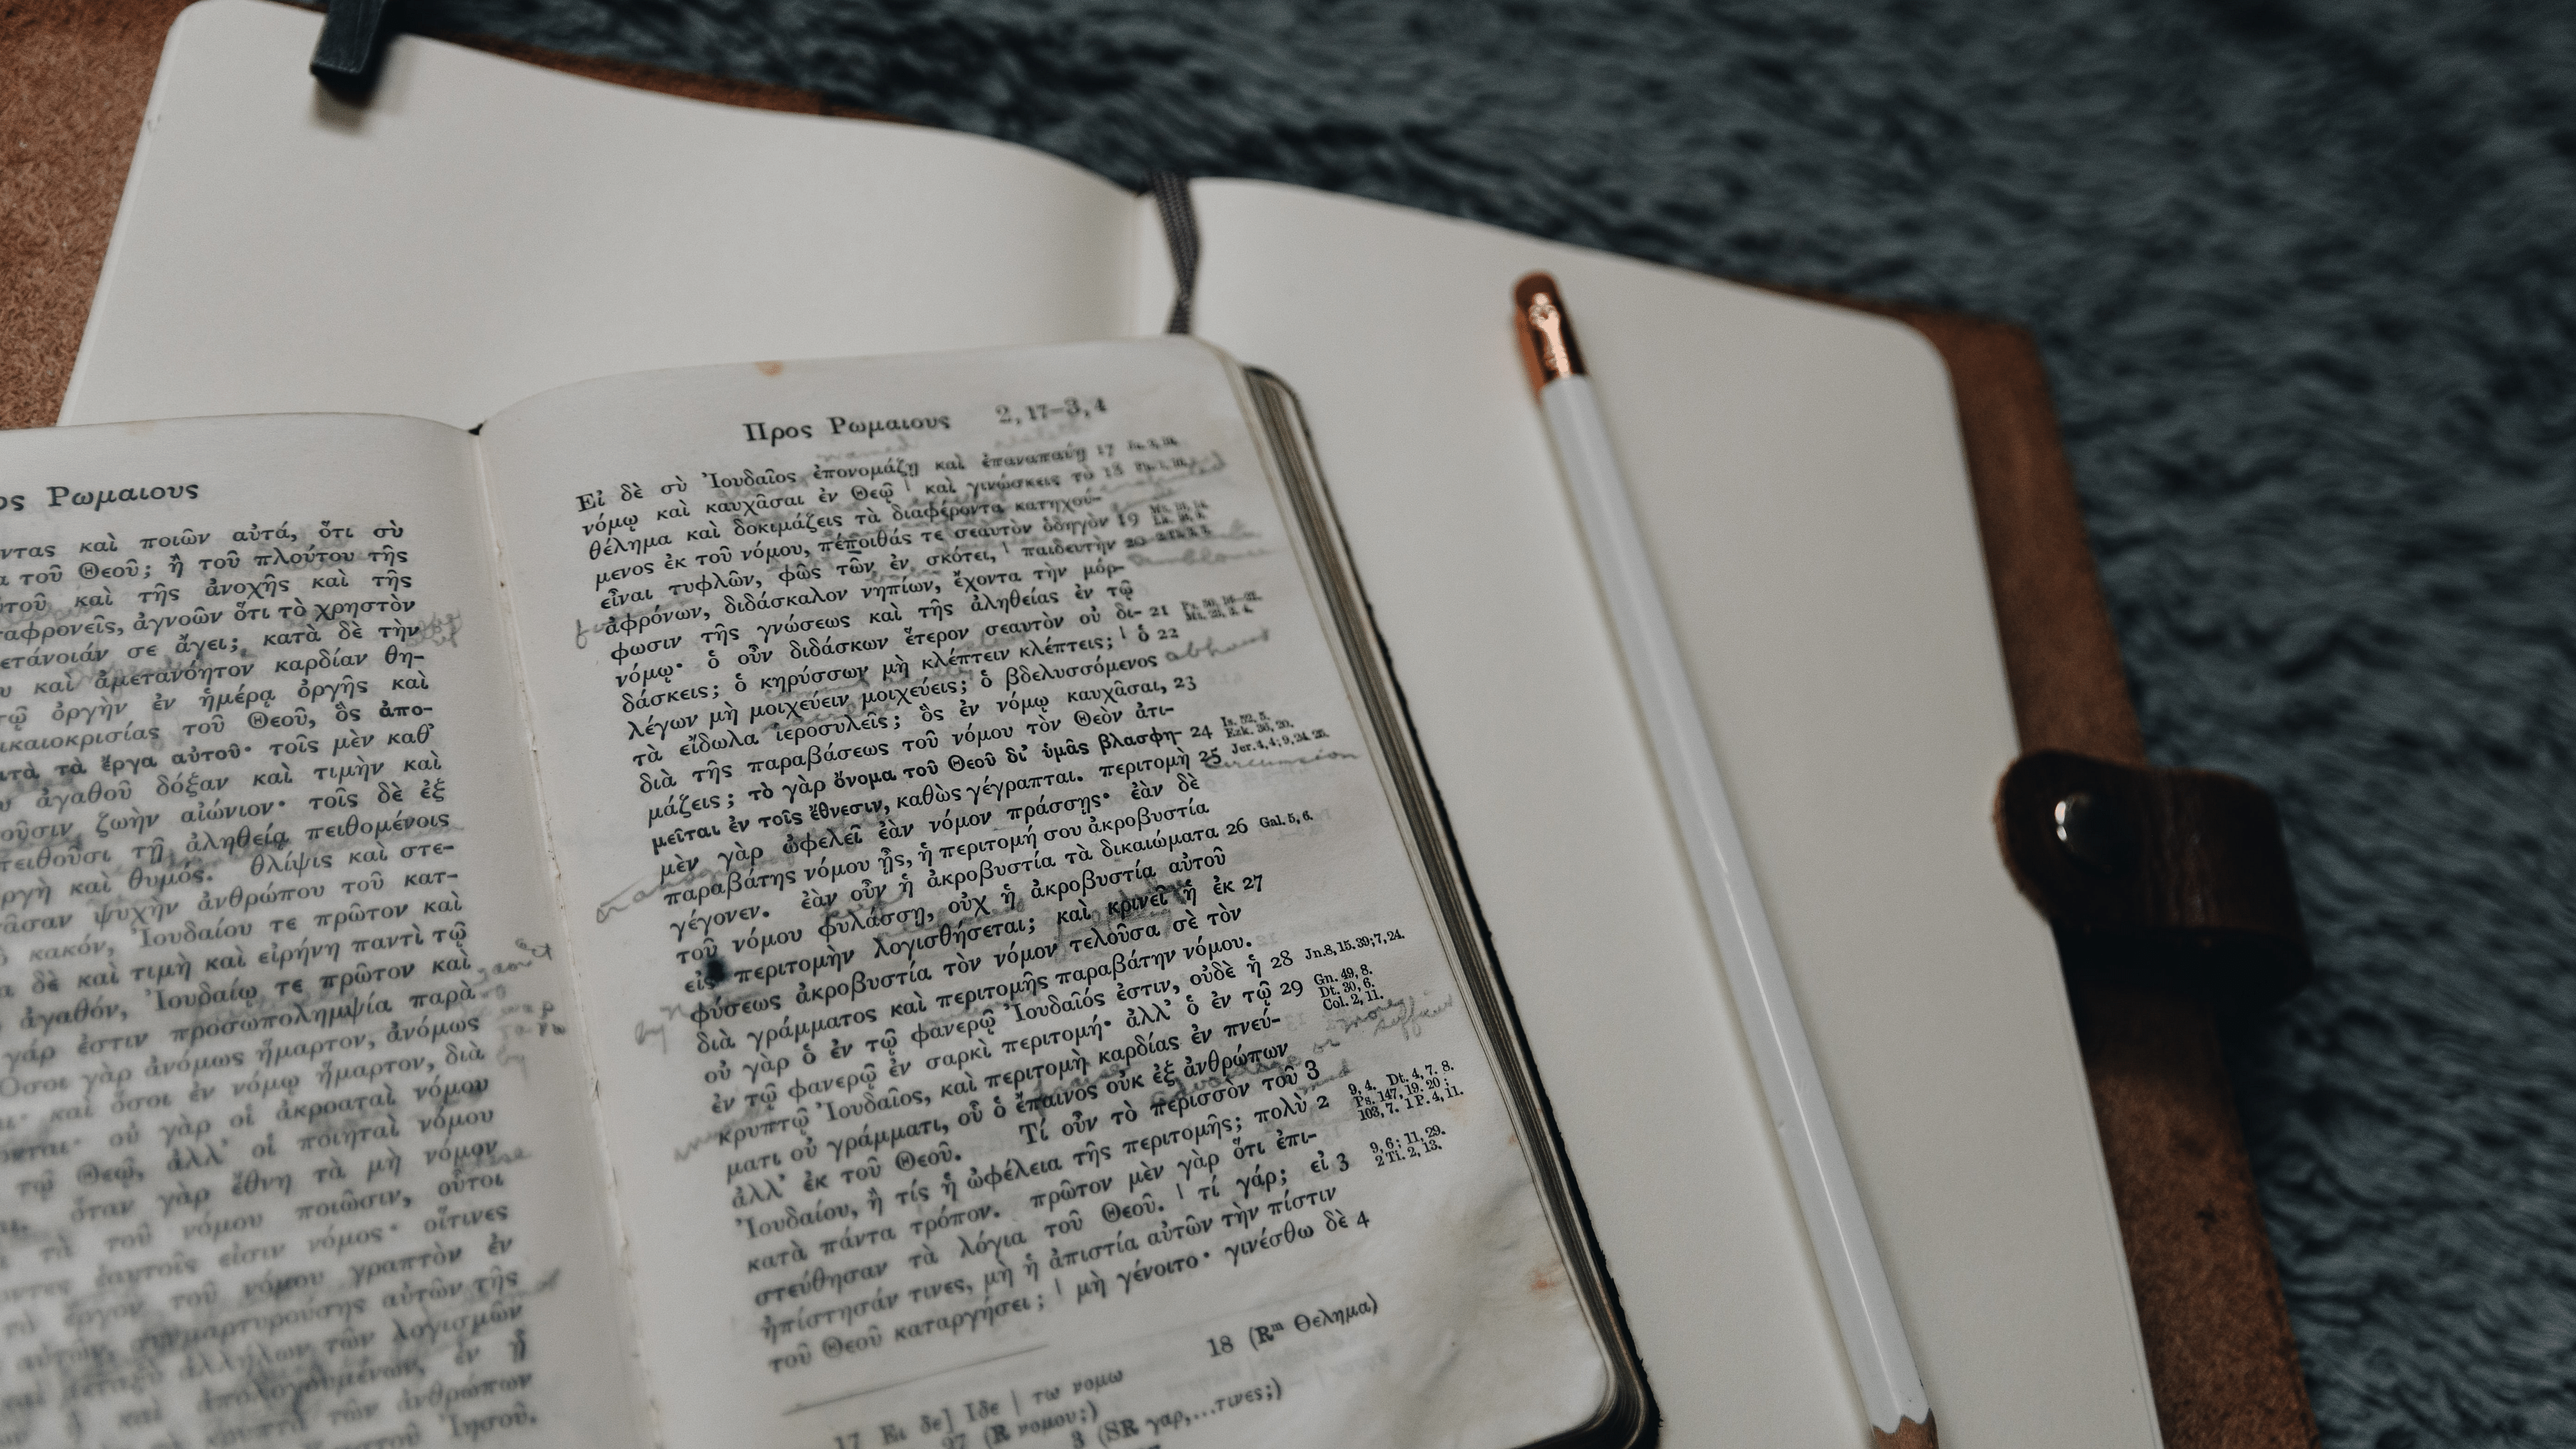 ος Ρωμαιους
ντας καὶ ποιῶν αὐτά, ὅτι σὺ
τοῦ Θεοῦ; ἢ τοῦ πλούτου τῆς
καὶ τῆς ἀνοχῆς καὶ τῆς
ταφρονεῖς, ἀγνοῶν ὅτι τὸ χρηστὸν
ετάνοιάν σε ἄγει; κατὰ δὲ τὴν
καὶ ἀμετανόητον καρδίαν θη-
ὀργὴν ἐν ἡμέρᾳ ὀργῆς καὶ
ικαιοκρισίας τοῦ Θεοῦ, ὃς ἀπο-
τὰ ἔργα αὐτοῦ· τοῖς μὲν καθ’
ἀγαθοῦ δόξαν καὶ τιμὴν καὶ
οῦσιν, ζωὴν αἰώνιον· τοῖς δὲ ἐξ
πειθοῦσι τῇ ἀληθείᾳ πειθομένοις
ργὴ καὶ θυμός. θλίψις καὶ στε-
ψυχὴν ἀνθρώπου τοῦ κατ-
κακόν, Ἰουδαίου τε πρῶτον καὶ
δὲ καὶ τιμὴ καὶ εἰρήνη παντὶ τῷ
ἀγαθόν, Ἰουδαίῳ τε πρῶτον καὶ
γάρ ἐστιν προσωπολημψία παρὰ
Ὅσοι γὰρ ἀνόμως ἥμαρτον, ἀνόμως
καὶ ὅσοι ἐν νόμῳ ἥμαρτον, διὰ
οὐ γὰρ οἱ ἀκροαταὶ νόμου
τῷ Θεῷ, ἀλλ’ οἱ ποιηταὶ νόμου
ὅταν γὰρ ἔθνη τὰ μὴ νόμον
τὰ τοῦ νόμου ποιῶσιν, οὗτοι
ἑαυτοῖς εἰσιν νόμος· οἵτινες
τὸ ἔργον τοῦ νόμου γραπτὸν ἐν
αὐτῶν τῆς
ἀλλήλων τῶν λογισμῶν
ἀπολογουμένων, ἐν ᾗ
κρυπτὰ τῶν ἀνθρώπων
Ἰησοῦ.
Προς Ρωμαιους 2, 17–3, 4
Εἰ δὲ σὺ Ἰουδαῖος ἐπονομάζῃ καὶ ἐπαναπαύῃ 17
νόμῳ καὶ καυχᾶσαι ἐν Θεῷ | καὶ γινώσκεις τὸ 18
θέλημα καὶ δοκιμάζεις τὰ διαφέροντα κατηχού-
μενος ἐκ τοῦ νόμου, πέποιθάς τε σεαυτὸν ὁδηγὸν 19
εἶναι τυφλῶν, φῶς τῶν ἐν σκότει, | παιδευτὴν 20
ἀφρόνων, διδάσκαλον νηπίων, ἔχοντα τὴν μόρ-
φωσιν τῆς γνώσεως καὶ τῆς ἀληθείας ἐν τῷ
νόμῳ· ὁ οὖν διδάσκων ἕτερον σεαυτὸν οὐ δι- 21
δάσκεις; ὁ κηρύσσων μὴ κλέπτειν κλέπτεις; | ὁ 22
λέγων μὴ μοιχεύειν μοιχεύεις; ὁ βδελυσσόμενος
τὰ εἴδωλα ἱεροσυλεῖς; ὃς ἐν νόμῳ καυχᾶσαι, 23
διὰ τῆς παραβάσεως τοῦ νόμου τὸν Θεὸν ἀτι-
μάζεις; τὸ γὰρ ὄνομα τοῦ Θεοῦ δι’ ὑμᾶς βλασφη- 24 Is. 52, 5. Ezk. 36, 20.
μεῖται ἐν τοῖς ἔθνεσιν, καθὼς γέγραπται. περιτομὴ 25 Jer. 4, 4; 9, 24. 25.
circumcision
μὲν γὰρ ὠφελεῖ ἐὰν νόμον πράσσῃς· ἐὰν δὲ
παραβάτης νόμου ᾖς, ἡ περιτομή σου ἀκροβυστία
γέγονεν. ἐὰν οὖν ἡ ἀκροβυστία τὰ δικαιώματα 26 Gal. 5, 6.
τοῦ νόμου φυλάσσῃ, οὐχ ἡ ἀκροβυστία αὐτοῦ
εἰς περιτομὴν λογισθήσεται; καὶ κρινεῖ ἡ ἐκ 27
φύσεως ἀκροβυστία τὸν νόμον τελοῦσα σὲ τὸν
διὰ γράμματος καὶ περιτομῆς παραβάτην νόμου.
οὐ γὰρ ὁ ἐν τῷ φανερῷ Ἰουδαῖός ἐστιν, οὐδὲ ἡ 28 Jn. 8, 15. 39; 7, 24.
ἐν τῷ φανερῷ ἐν σαρκὶ περιτομή· ἀλλ’ ὁ ἐν τῷ 29 Gn. 49, 8. Dt. 30, 6. Col. 2, 11.
κρυπτῷ Ἰουδαῖος, καὶ περιτομὴ καρδίας ἐν πνεύ-
ματι οὐ γράμματι, οὗ ὁ ἔπαινος οὐκ ἐξ ἀνθρώπων
ἀλλ’ ἐκ τοῦ Θεοῦ. Τί οὖν τὸ περισσὸν τοῦ 3
Ἰουδαίου, ἢ τίς ἡ ὠφέλεια τῆς περιτομῆς; πολὺ 2 9, 4. Dt. 4, 7. 8. Ps. 147, 19. 20; 103, 7. 1 P. 4, 11.
κατὰ πάντα τρόπον. πρῶτον μὲν γὰρ ὅτι ἐπι-
στεύθησαν τὰ λόγια τοῦ Θεοῦ. | τί γάρ; εἰ 3 9, 6; 11, 29. 2 Ti. 2, 13.
ἠπίστησάν τινες, μὴ ἡ ἀπιστία αὐτῶν τὴν πίστιν
τοῦ Θεοῦ καταργήσει; | μὴ γένοιτο· γινέσθω δὲ 4
17 Ει δε] Ιδε | τω νομω 18 (Rᵐ Θελημα)
27 (R νομου;) 3 (SR γαρ,...τινες;)